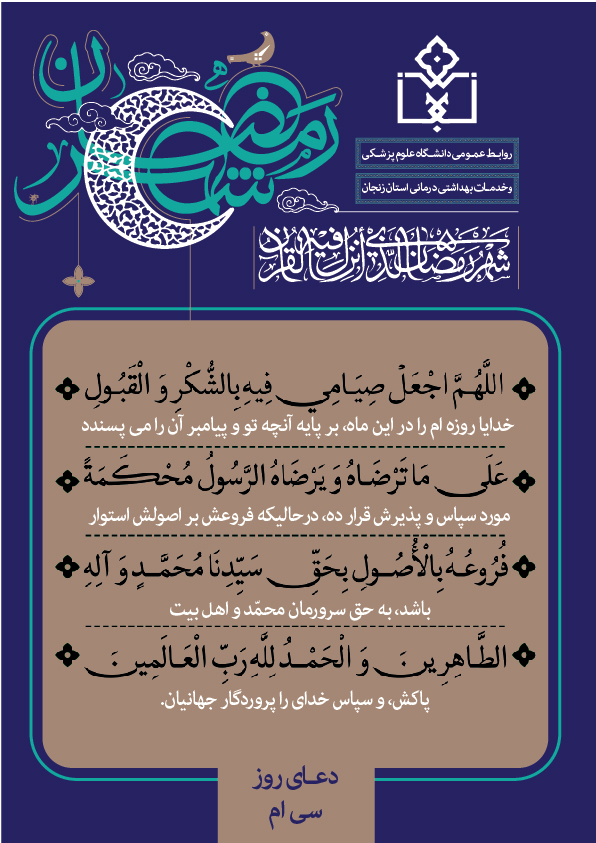 شهر رمضان
روابط عمومی دانشگاه علوم پزشکی
و خدمات بهداشتی درمانی استان زنجان
شهر رمضان الذی أنزل فیه القرآن
اللَّهُمَّ اجْعَلْ صِيَامِي فِيهِ بِالشُّكْرِ وَ الْقَبُولِ
خدایا روزه ام را در این ماه، بر پایه آنچه تو و پیامبر آن را می پسندد
عَلَى مَا تَرْضَاهُ وَ يَرْضَاهُ الرَّسُولُ مُحْكَمَةً
مورد سپاس و پذیرش قرار ده، درحالیکه فروعش بر اصولش استوار
فُرُوعُهُ بِالْأُصُولِ بِحَقِّ سَيِّدِنَا مُحَمَّدٍ وَ آلِهِ
باشد، به حق سرورمان محمّد و اهل بیت
الطَّاهِرِينَ وَ الْحَمْدُ لِلَّهِ رَبِّ الْعَالَمِينَ
پاکش، و سپاس خدای را پروردگار جهانیان.
دعای روز
سی ام